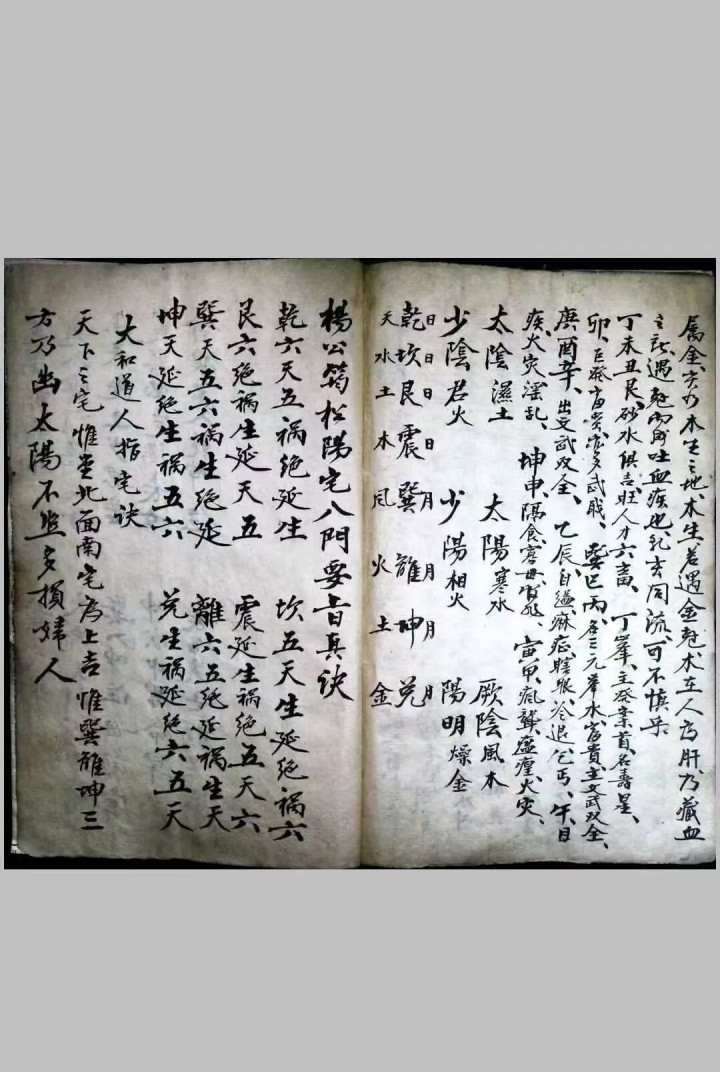 属金亥乃木生之地木生若遇金剋木在人為肝乃藏血
之說遇剋內有吐血疾也乳玄同流可不慎乎
丁未丑艮砂水俱吉旺人才六畜丁峯主發案首名壽星
卯巨發富貴武職巽巳丙名三元峯水富貴主文武双全
庚酉辛出文武双全乙辰自縊麻症瞎眼冷退乞丐午日
疾火灾淫乱坤申隔食寡母寅甲瘋聾瘟瘴火灾
太陰濕土 太陽寒水 厥陰風木
少陰君火 少陽相火 陽明燥金
日日日日月月月月
乾坎艮震巽離坤兌
天水土木風火土金
楊公筠松陽宅八門要旨真訣
乾六天五祸绝延生 坎五天生延绝祸六
艮六绝祸生延天五 震延生祸绝五天六
巽天五六祸生绝延 離六五绝延祸生天
坤天延绝生祸五六 兌生祸延绝六五天
大和道人指宅訣
天下之宅惟坐北面南宅為上吉惟巽離坤三
方乃幽太陽不照多損婦人